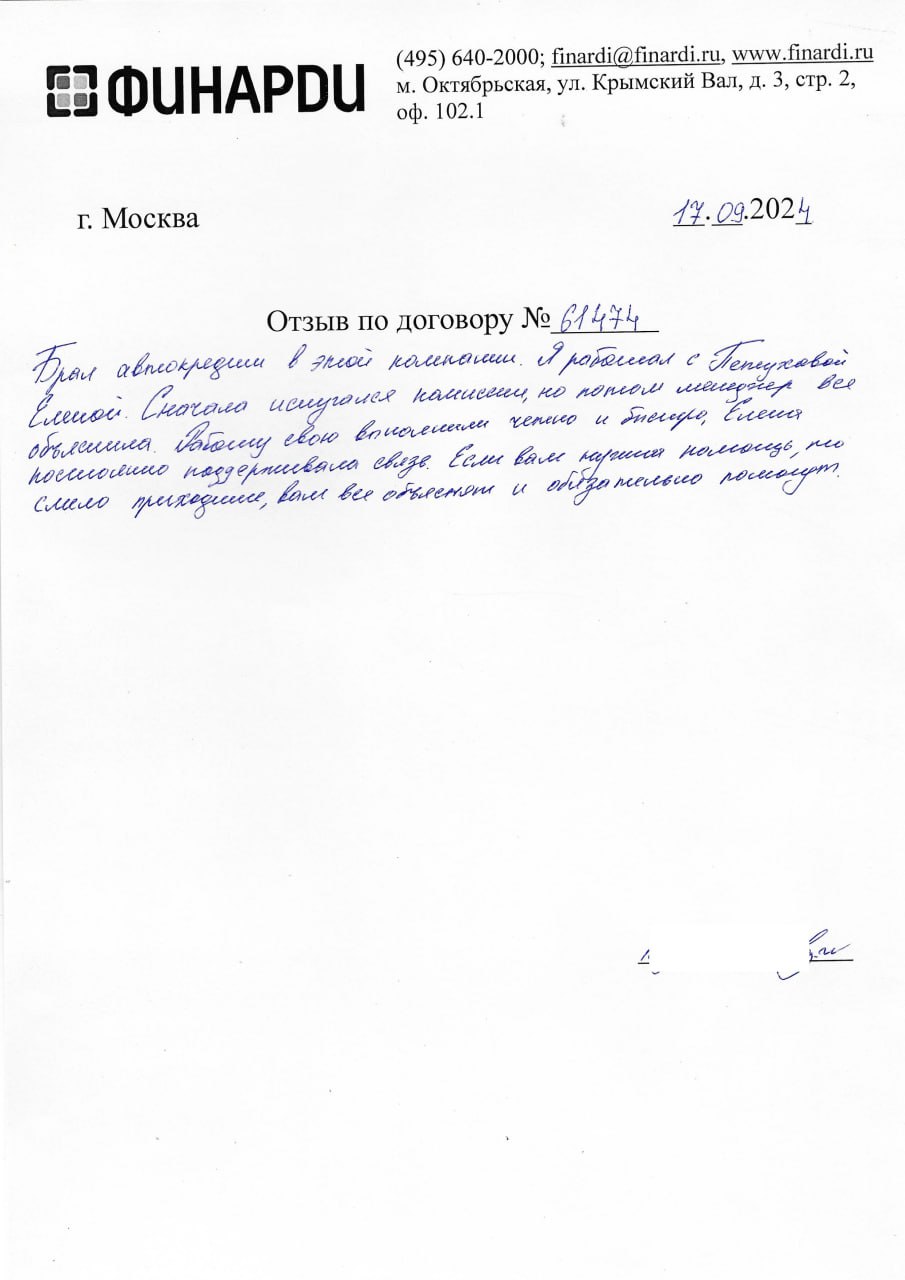 ФИНАРDИ
(495) 640-2000; finardi@finardi.ru, www.finardi.ru
м. Октябрьская, ул. Крымский Вал, д. 3, стр. 2,
оф. 102.1
г. Москва
17.09.2024
Отзыв по договору № 61474
Брал автокредит в этой компании. Я работал с Петуховой
Еленой. Сначала испугался комиссии, но потом менеджер все
объяснила. Работу свою выполнили четко и быстро, Елена
постоянно поддерживала связь. Если вам нужна помощь, то
смело приходите, вам все объяснят и обязательно помогут.